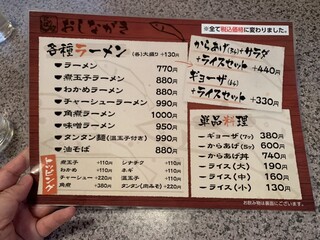 おしながき
※全て税込価格に変わりました。
各種ラーメン (各)大盛り+130円
ラーメン 770円
煮玉子ラーメン 880円
わかめラーメン 880円
チャーシューラーメン 990円
角煮ラーメン 1000円
味噌ラーメン 950円
タンタン麺(温玉子付き) 990円
油そば 880円
トッピング
煮玉子 +110円 シナチク +110円
わかめ +110円 ネギ +110円
チャーシュー +220円 温玉子 +110円
角煮 +380円 タンタン(肉みそ) +220円
からあげ(3ヶ)+サラダ
+ライスセット +440円
ギョーザ(4ヶ)
+ライスセット +330円
単品料理
ギョーザ(7ヶ) 380円
からあげ(5ヶ) 600円
からあげ丼 740円
ライス(大) 190円
ライス(中) 160円
ライス(小) 130円
お飲み物は裏面にございます。